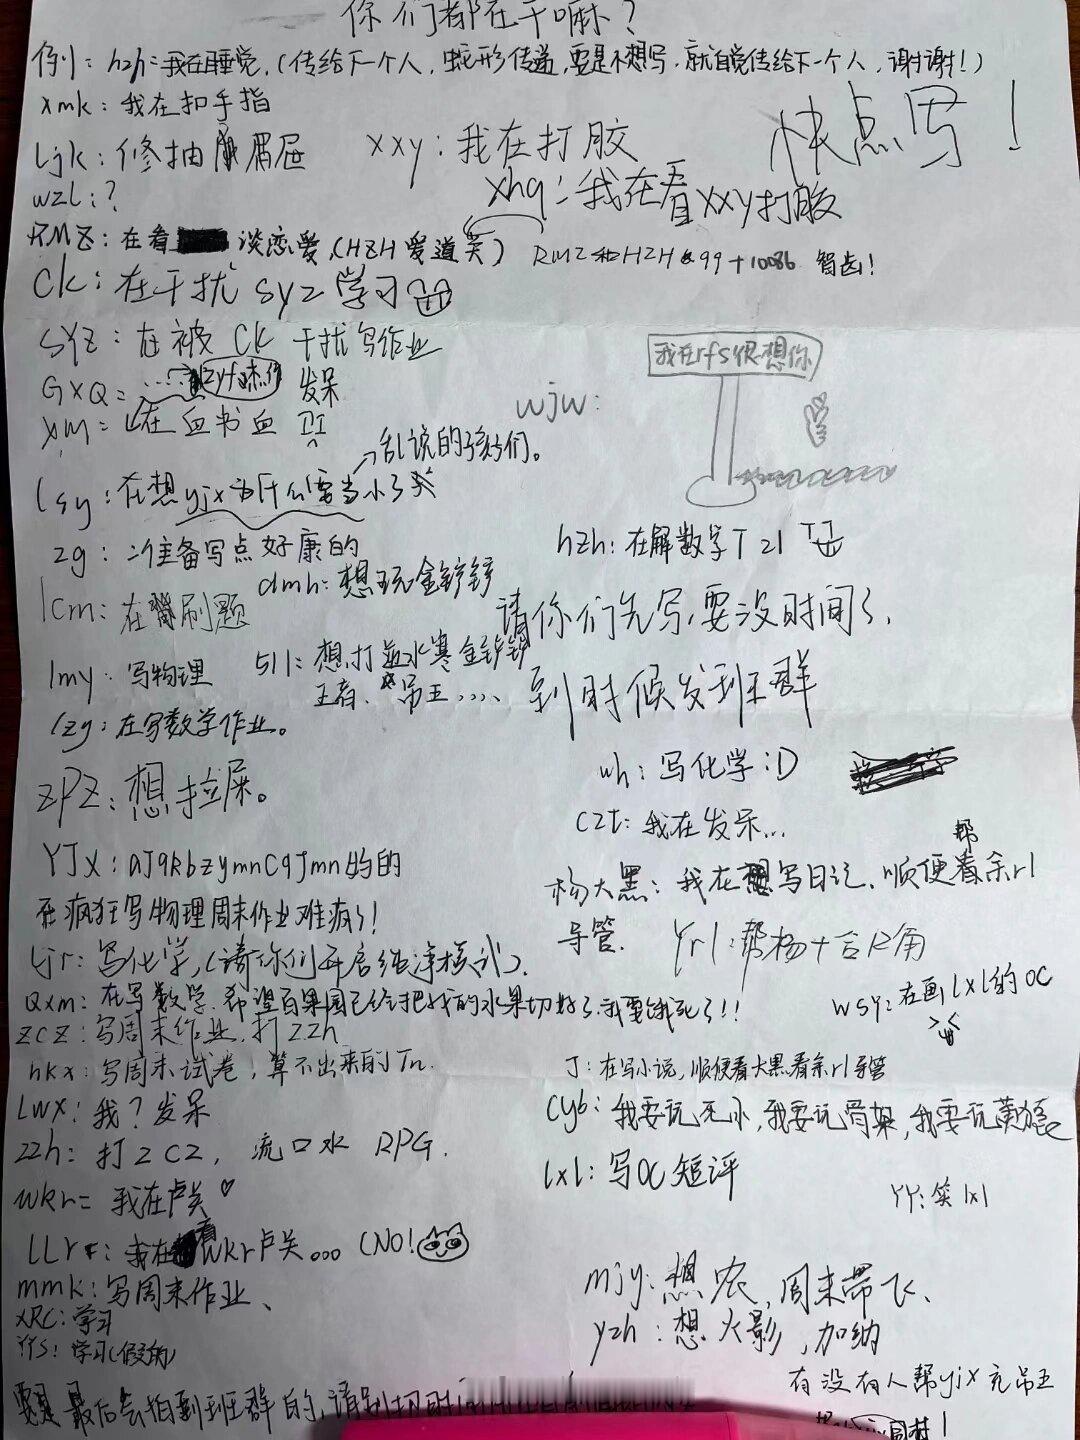 你们都在干嘛？
例：hzh：我在睡觉.（传给下一个人，蛇形传递，要是不想写，就自觉传给下一个人，谢谢！）
xmk：我在扣手指
快点写！
ljk：修抽屉
xxy：我在打胶
wzl：？
xhq：我在看xxy打胶
RMZ：在看谈恋爱（HZH爱道关） RMZ和HZH 99+10086 智齿！
CK：在干扰syz学习
SYZ：在被CK干扰写作业
我在rfs很想你
GXQ：…… 发呆
wjw：
XM：在血书血
乱说的孩子们。
lsy：在想yjx为什么要当小3
zg：准备写点好康的
hzh：在解数学T21
dmh：想玩金铲铲
lcm：在刷题
请你们先写，要没时间了，
lmy：写物理
511：想打逆水寒金铲铲
王者、吊王……
到时候发班群
lzg：在写数学作业。
wh：写化学：D
ZPZ：想拉屎。
czt：我在发呆…
YJX：aJqkbzymnCqJmn妈的
杨大黑：我在写日记，顺便帮看余rl
在疯狂写物理周末作业难疯了！
导管.
Yrl：帮杨十合R角
ljr：写化学，（请你们开启纯净模式）.
Qxm：在写数学.希望百果园已经把我的水果切好了.我要饿死了！！
wsy：在画lxl的OC
zcz：写周末作业，打ZZh
hkx：写周末试卷，算不出来的Tn.
J：在写小说，顺便看大黑看余rl导管
Lwx：我？发呆
cyb：我要玩无小，我要玩骨架，我要玩黄
zzh：打ZCZ，流口水 RPG.
lxl：写OC短评
wkr=我在卢关♡
YY：笑lxl
LLr：我在看wkr卢关…（NO！
mmk：写周末作业、
mjy：想农，周末带飞、
XRC：学习
yzh：想火影，加纳
YYS：学习（假的）
有没有人帮yjx充吊王
要是最后会拍到班群的，请别